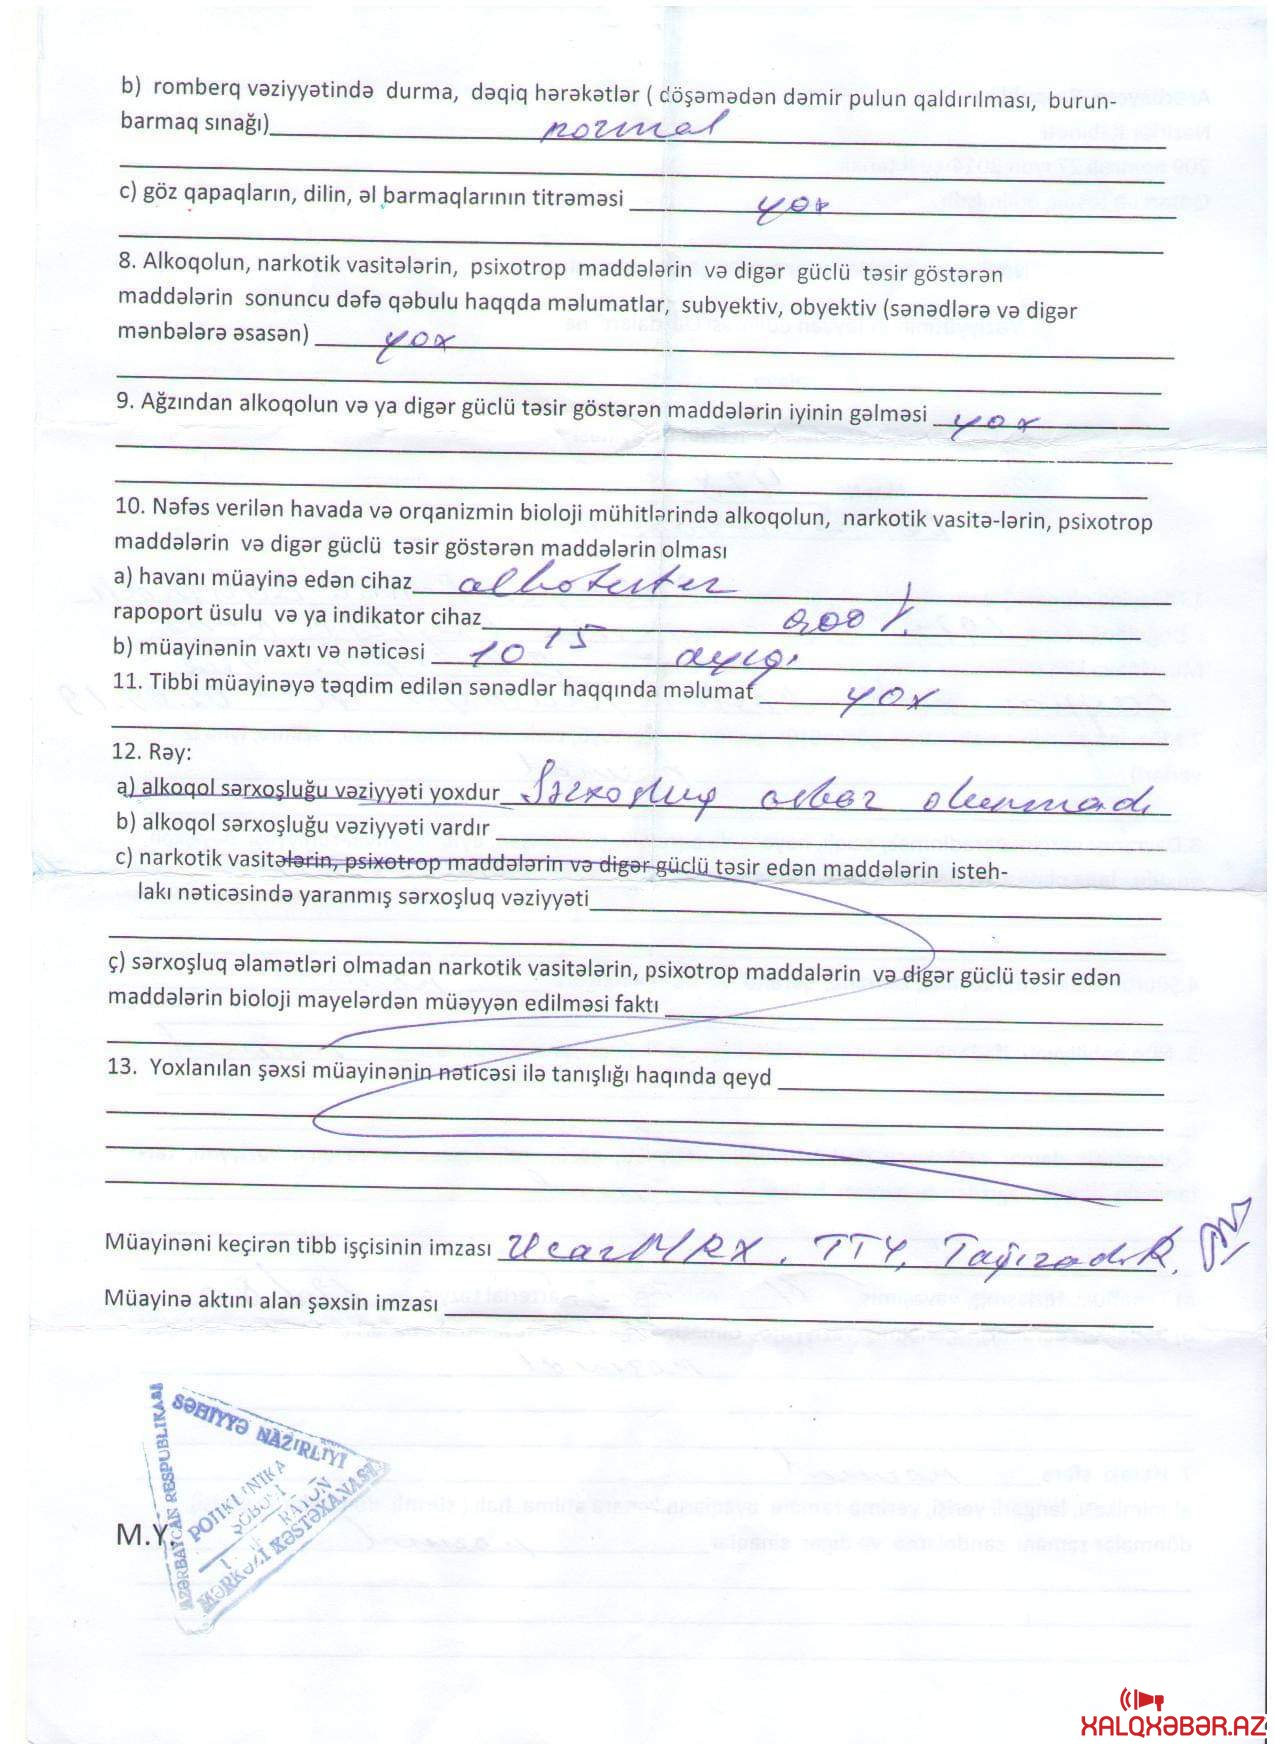 b) romberq vəziyyətində durma, dəqiq hərəkətlər ( döşəmədən dəmir pulun qaldırılması, burun-
barmaq sınağı) normal
c) göz qapaqların, dilin, əl barmaqlarının titrəməsi yox
8. Alkoqolun, narkotik vasitələrin, psixotrop maddələrin və digər güclü təsir göstərən
maddələrin sonuncu dəfə qəbulu haqqda məlumatlar, subyektiv, obyektiv (sənədlərə və digər
mənbələrə əsasən) yox
9. Ağzından alkoqolun və ya digər güclü təsir göstərən maddələrin iyinin gəlməsi yox
10. Nəfəs verilən havada və orqanizmin bioloji mühitlərində alkoqolun, narkotik vasitə-lərin, psixotrop
maddələrin və digər güclü təsir göstərən maddələrin olması
a) havanı müayinə edən cihaz alkotester
rapoport üsulu və ya indikator cihaz 0,00%
b) müayinənin vaxtı və nəticəsi 10 15 ayıq.
11. Tibbi müayinəyə təqdim edilən sənədlər haqqında məlumat yox
12. Rəy:
a) alkoqol sərxoşluğu vəziyyəti yoxdur Sərxoşluq aşkar olunmadı
b) alkoqol sərxoşluğu vəziyyəti vardır
c) narkotik vasitələrin, psixotrop maddələrin və digər güclü təsir edən maddələrin isteh-
lakı nəticəsində yaranmış sərxoşluq vəziyyəti
ç) sərxoşluq əlamətləri olmadan narkotik vasitələrin, psixotrop maddalərin və digər güclü təsir edən
maddələrin bioloji mayelərdən müəyyən edilməsi faktı
13. Yoxlanılan şəxsi müayinənin nəticəsi ilə tanışlığı haqında qeyd
Müayinəni keçirən tibb işçisinin imzası Ucar MRX, TTY, Tağızadə R.
Müayinə aktını alan şəxsin imzası
AZƏRBAYCAN RESPUBLİKASI
SƏHİYYƏ NAZİRLİYİ
POLİKLİNİKA
ŞÖBƏSİ
RAYON
MƏRKƏZİ XƏSTƏXANASI
M.Y.
XALQXƏBƏR.AZ